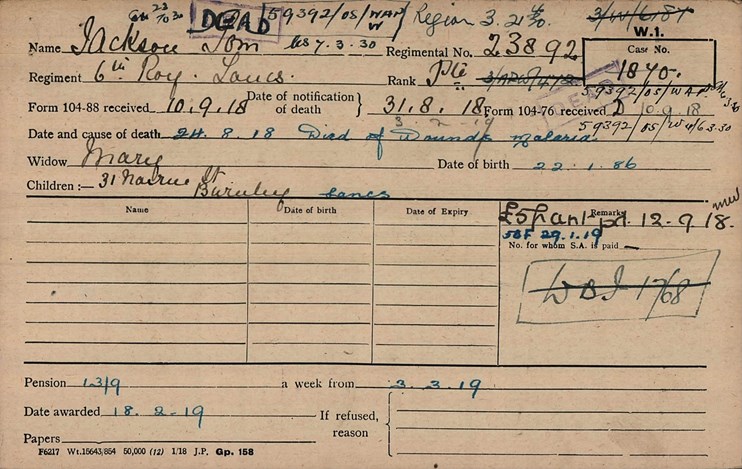 DEAD 59392/05/WAP/W Region 3. 21/4/30. 3/W/6187
W.1.
Name Jackson Tom 7.3.30 Regimental No. 23892 Case No.
1840.
Regiment 6th Roy. Lancs. Rank Pte
DEAD 59392/05/WAP
Form 104-88 received 10.9.18 Date of notification of death } 31.8.18 Form 104-76 received D 10.9.18
3.2.19
59392/05/W4/6.3.30
Date and cause of death 24.8.18 Died of Wounds Malaria
Widow Mary Date of birth 22.1.86
Children :— 31 Nairne St
Burnley Lancs
Name Date of birth Date of Expiry Remarks
£5 Grant pd. 12.9.18.
58F 29.1.19
No. for whom S.A. is paid —
WBI 1768
Pension 13/9 a week from 3.3.19
Date awarded 18.2.19 If refused, reason
Papers
F6217 Wt.15643/854 50,000 (12) 1/18 J.P. Gp. 158